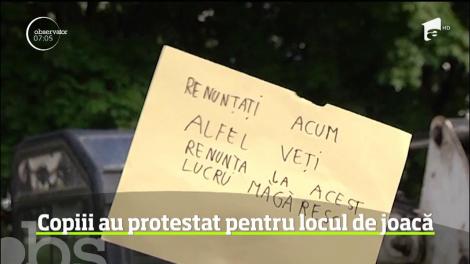 observator
07:05
HD
RENUNȚAȚI ACUM
ALFEL VEȚI
RENUNȚA LA ACEST
LUCRU MĂGĂRESC
Copiii au protestat pentru locul de joacă